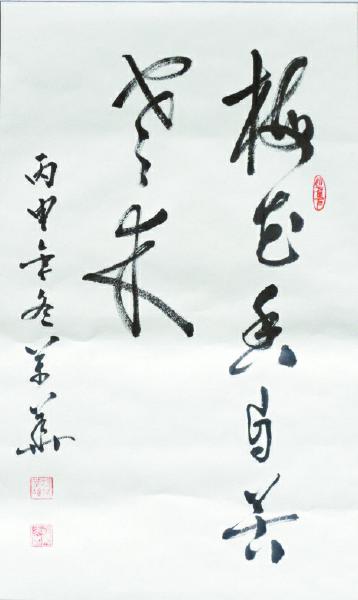 梅花香自苦
寒来
丙申年冬 万华